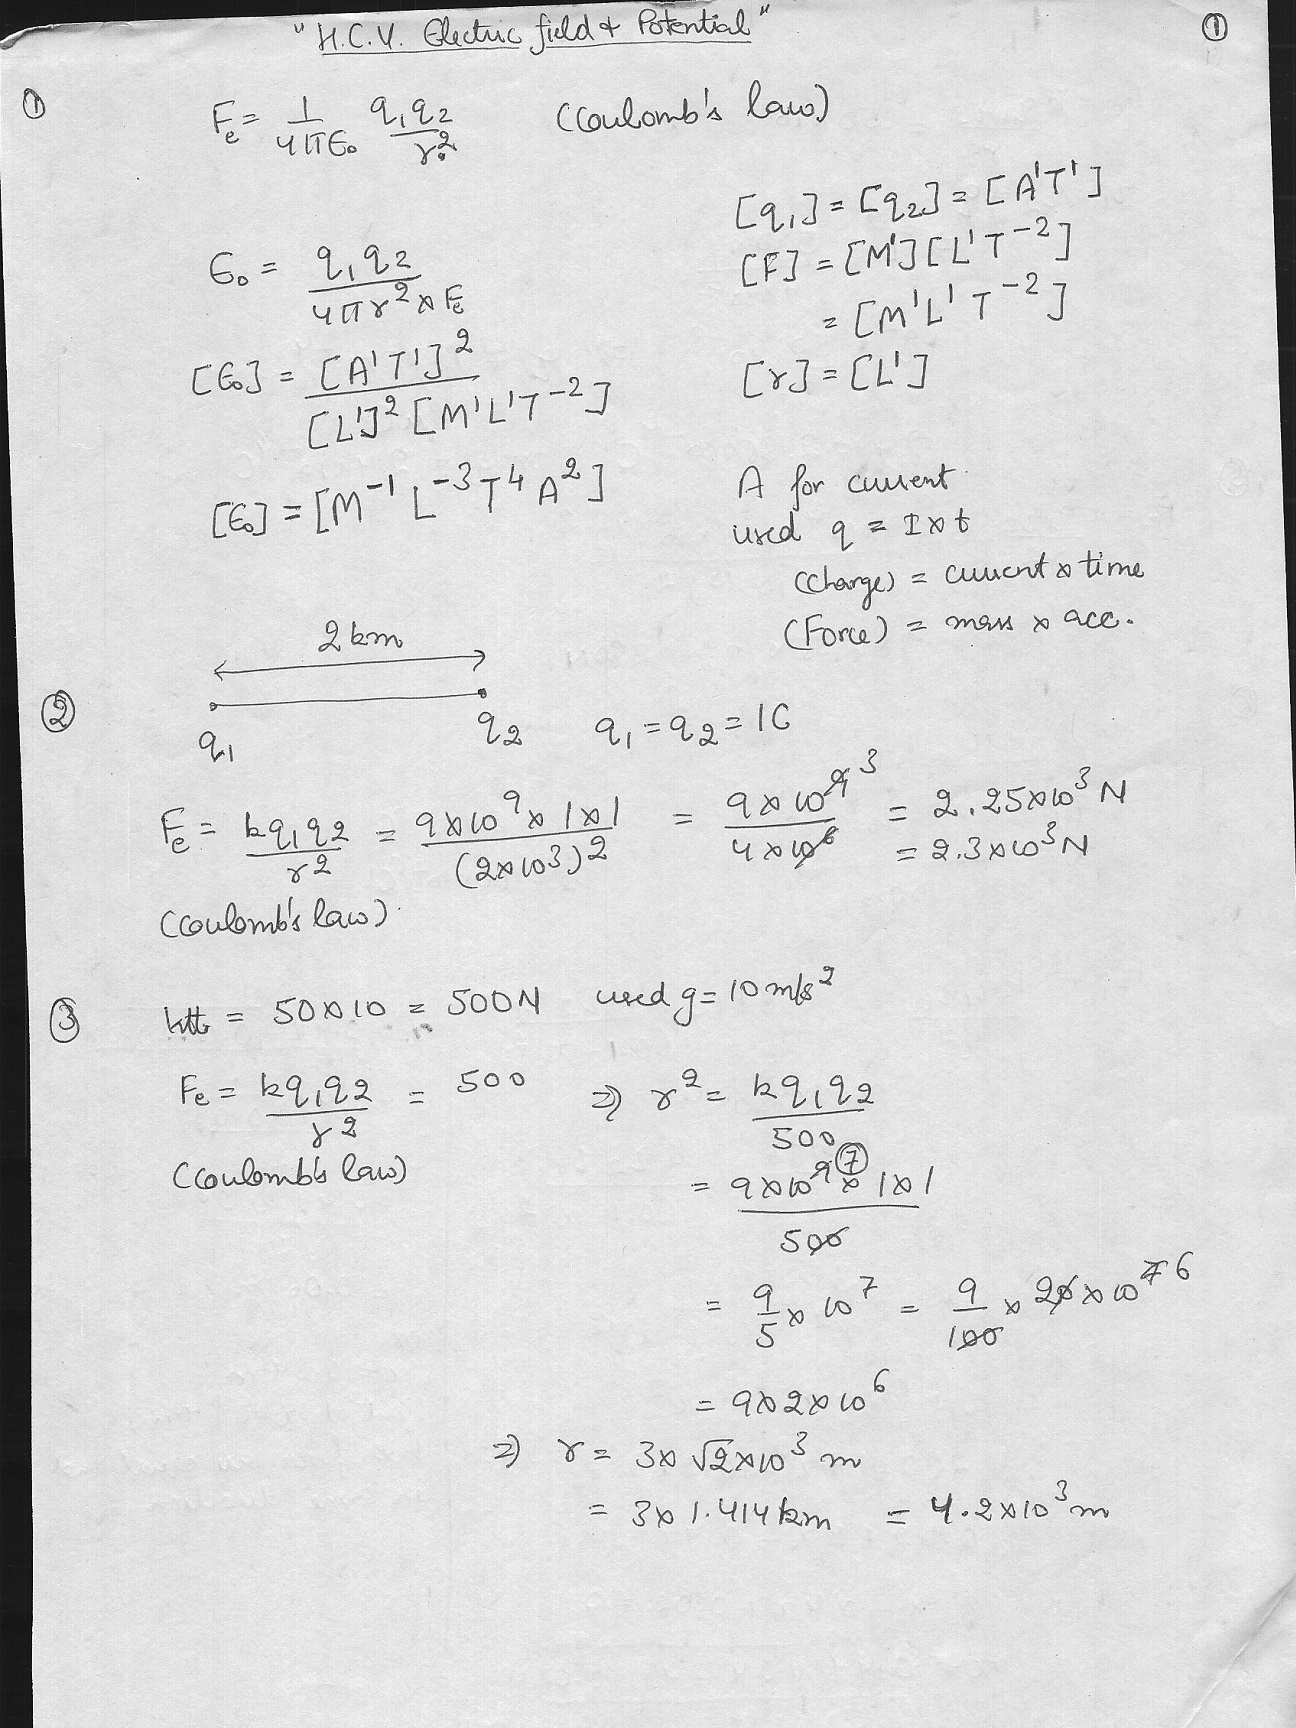 "H.C.V. Electric field & Potential" ①
① Fe = 1/4πϵ₀ q₁q₂/r² (Coulomb's law)
[q₁] = [q₂] = [A¹T¹]
[F] = [M¹][L¹T⁻²]
= [M¹L¹T⁻²]
[r] = [L¹]
ϵ₀ = q₁q₂/4πr² × Fe
[ϵ₀] = [A¹T¹]²/[L¹]² [M¹L¹T⁻²]
[ϵ₀] = [M⁻¹ L⁻³ T⁴ A²]
A for current
used q = I × t
(Charge) = current × time
(Force) = mass × acc.
2 km
②
q₁ q₂ q₁ = q₂ = 1C
Fe = kq₁q₂/r² = 9×10⁹×1×1/(2×10³)² = 9×10⁹ ³/4×10⁶ = 2.25×10³ N
= 2.3×10³ N
(Coulomb's law)
③ wt = 50×10 = 500N used g = 10 m/s²
Fe = kq₁q₂/r² = 500 ⇒ r² = kq₁q₂/500
(Coulomb's law)
= 9×10⁹ ⑦ × 1×1/500
= 9/5 × 10⁷ = 9/100 × 20 × 10⁷ 6
= 9×2×10⁶
⇒ r = 3×√2×10³ m
= 3×1.414 km = 4.2×10³ m